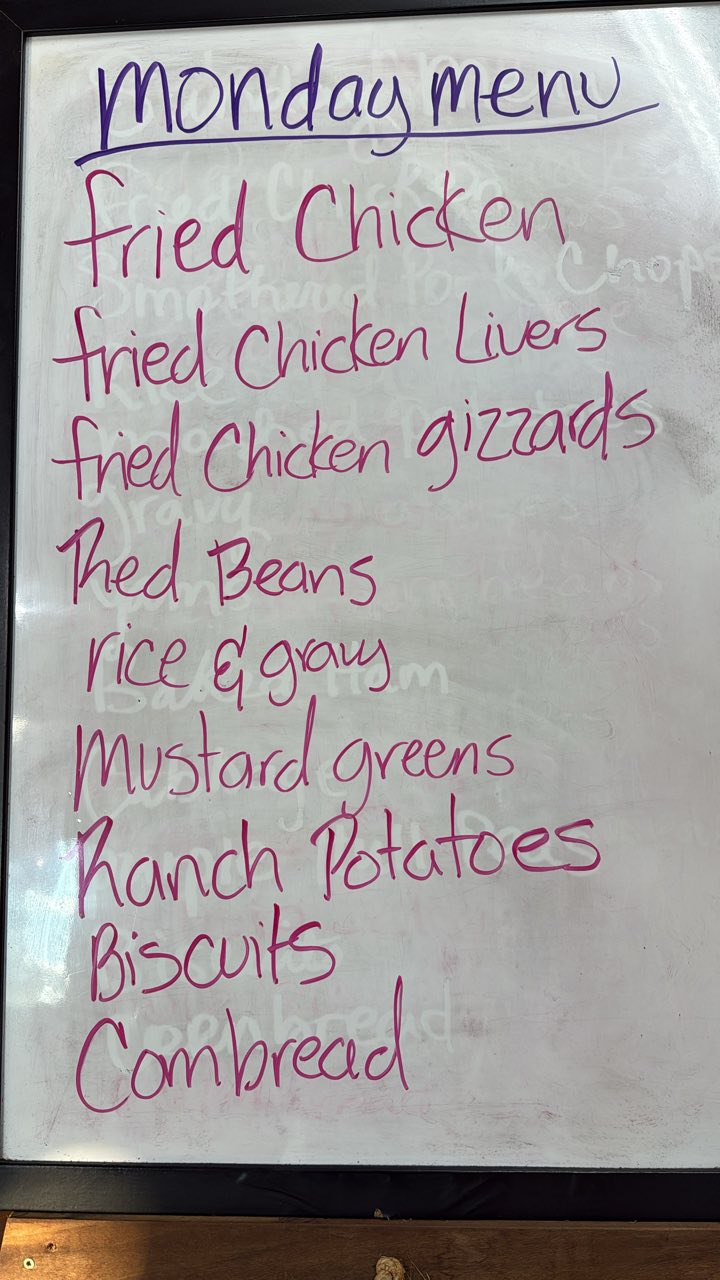 Monday menu
fried Chicken
fried Chicken Livers
fried Chicken gizzards
Red Beans
rice & gravy
Mustard greens
Ranch Potatoes
Biscuits
Cornbread